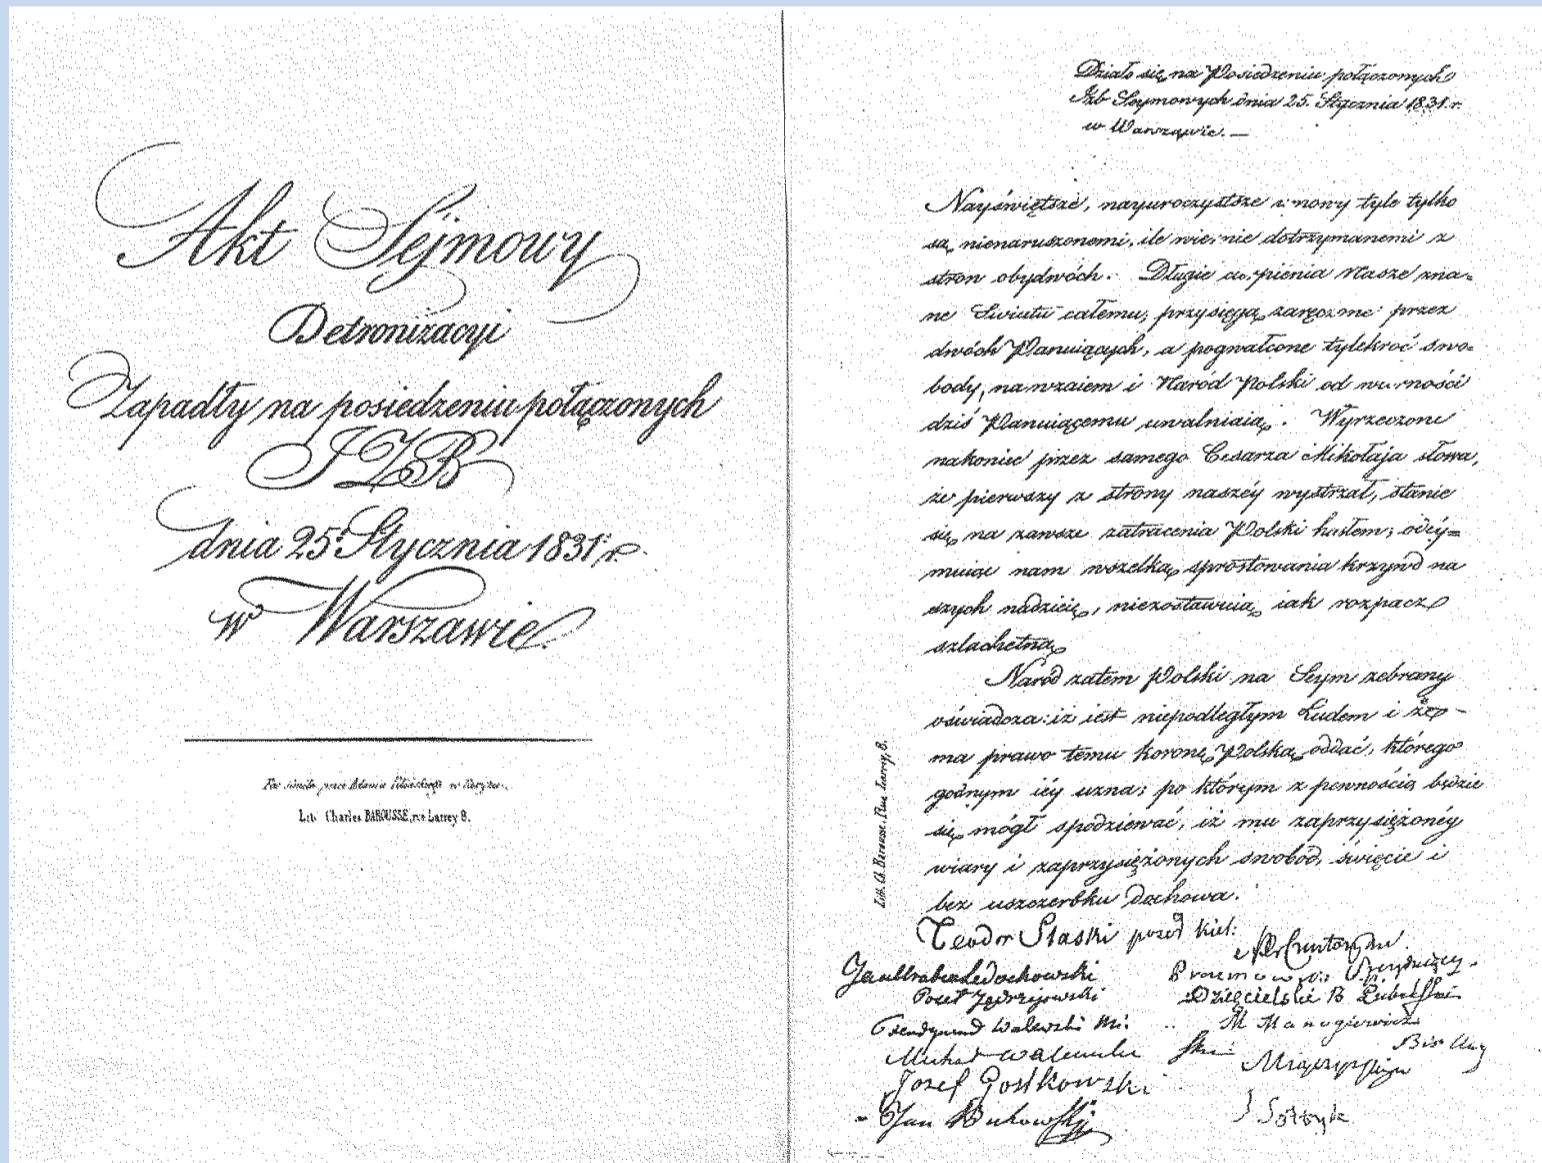 Akt Sejmowy
Detronizacyi
Zapadły na posiedzeniu połączonych
IZB
dnia 25º Stycznia 1831 r.
w Warszawie.
przez Adama w
Lit: Charles BAROUSSE, rue Larrey 8.
Działo się na Posiedzeniu połączonych
Izb Seymowych dnia 25. Stycznia 1831. r.
w Warszawie. —
Nayświętsze, nayuroczystsze umowy tyle tylko
są nienaruszonemi, ile wiernie dotrzymanemi z
stron obydwóch. Długie cierpienia nasze zna=
ne Światu całemu; przysięgą zaręczone przez
dwóch Panuiących, a pogwałcone tylekroć swo=
body, nawzaiem i Naród Polski od wierności
dziś Panuiącemu uwalniaią. Wyrzeczone
nakoniec przez samego Cesarza Mikołaja słowa,
że pierwszy z strony naszéy wystrzał, stanie
się na zawsze zatracenia Polski hasłem; odéy=
muiąc nam wszelką sprostowania krzywd na
szych nadzieię, niezostawuią iak rozpacz
szlachetną
Naród zatem Polski na Seym zebrany
oświadcza: iż iest niepodległym Ludem i że —
ma prawo temu koronę Polską oddać, którego
godnym iéy uzna; po którym z pewnością będzie
się mógł spodziewać, iż mu zaprzysiężonéy
wiary i zaprzysiężonych swobód, święcie i
bez uszczerbku dochowa.
Lit. Ch. Barousse, Rue Larrey, 8.
Teodor Slaski poseł kiel:
Jan Hrabia Ledochowski
Poseł Jędrzejowski
Walewski
Michał
Józef Gostkowski
Jan Bukowski
J Sołtyk